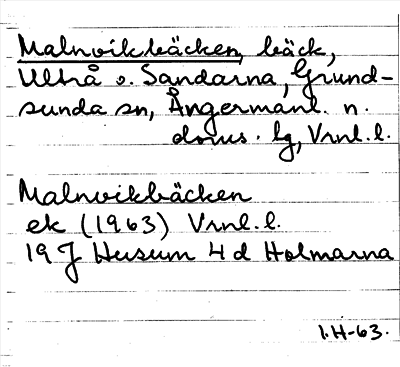 Malnvikbäcken, bäck,
Ultrå o. Sandarna, Grund-
sunda sn, Ångermanl. n.
doms. lg, Vrnl. l.
Malnvikbäcken
ek (1963) Vrnl. l.
19 J Husum 4 d Holmarna
1.H-63.